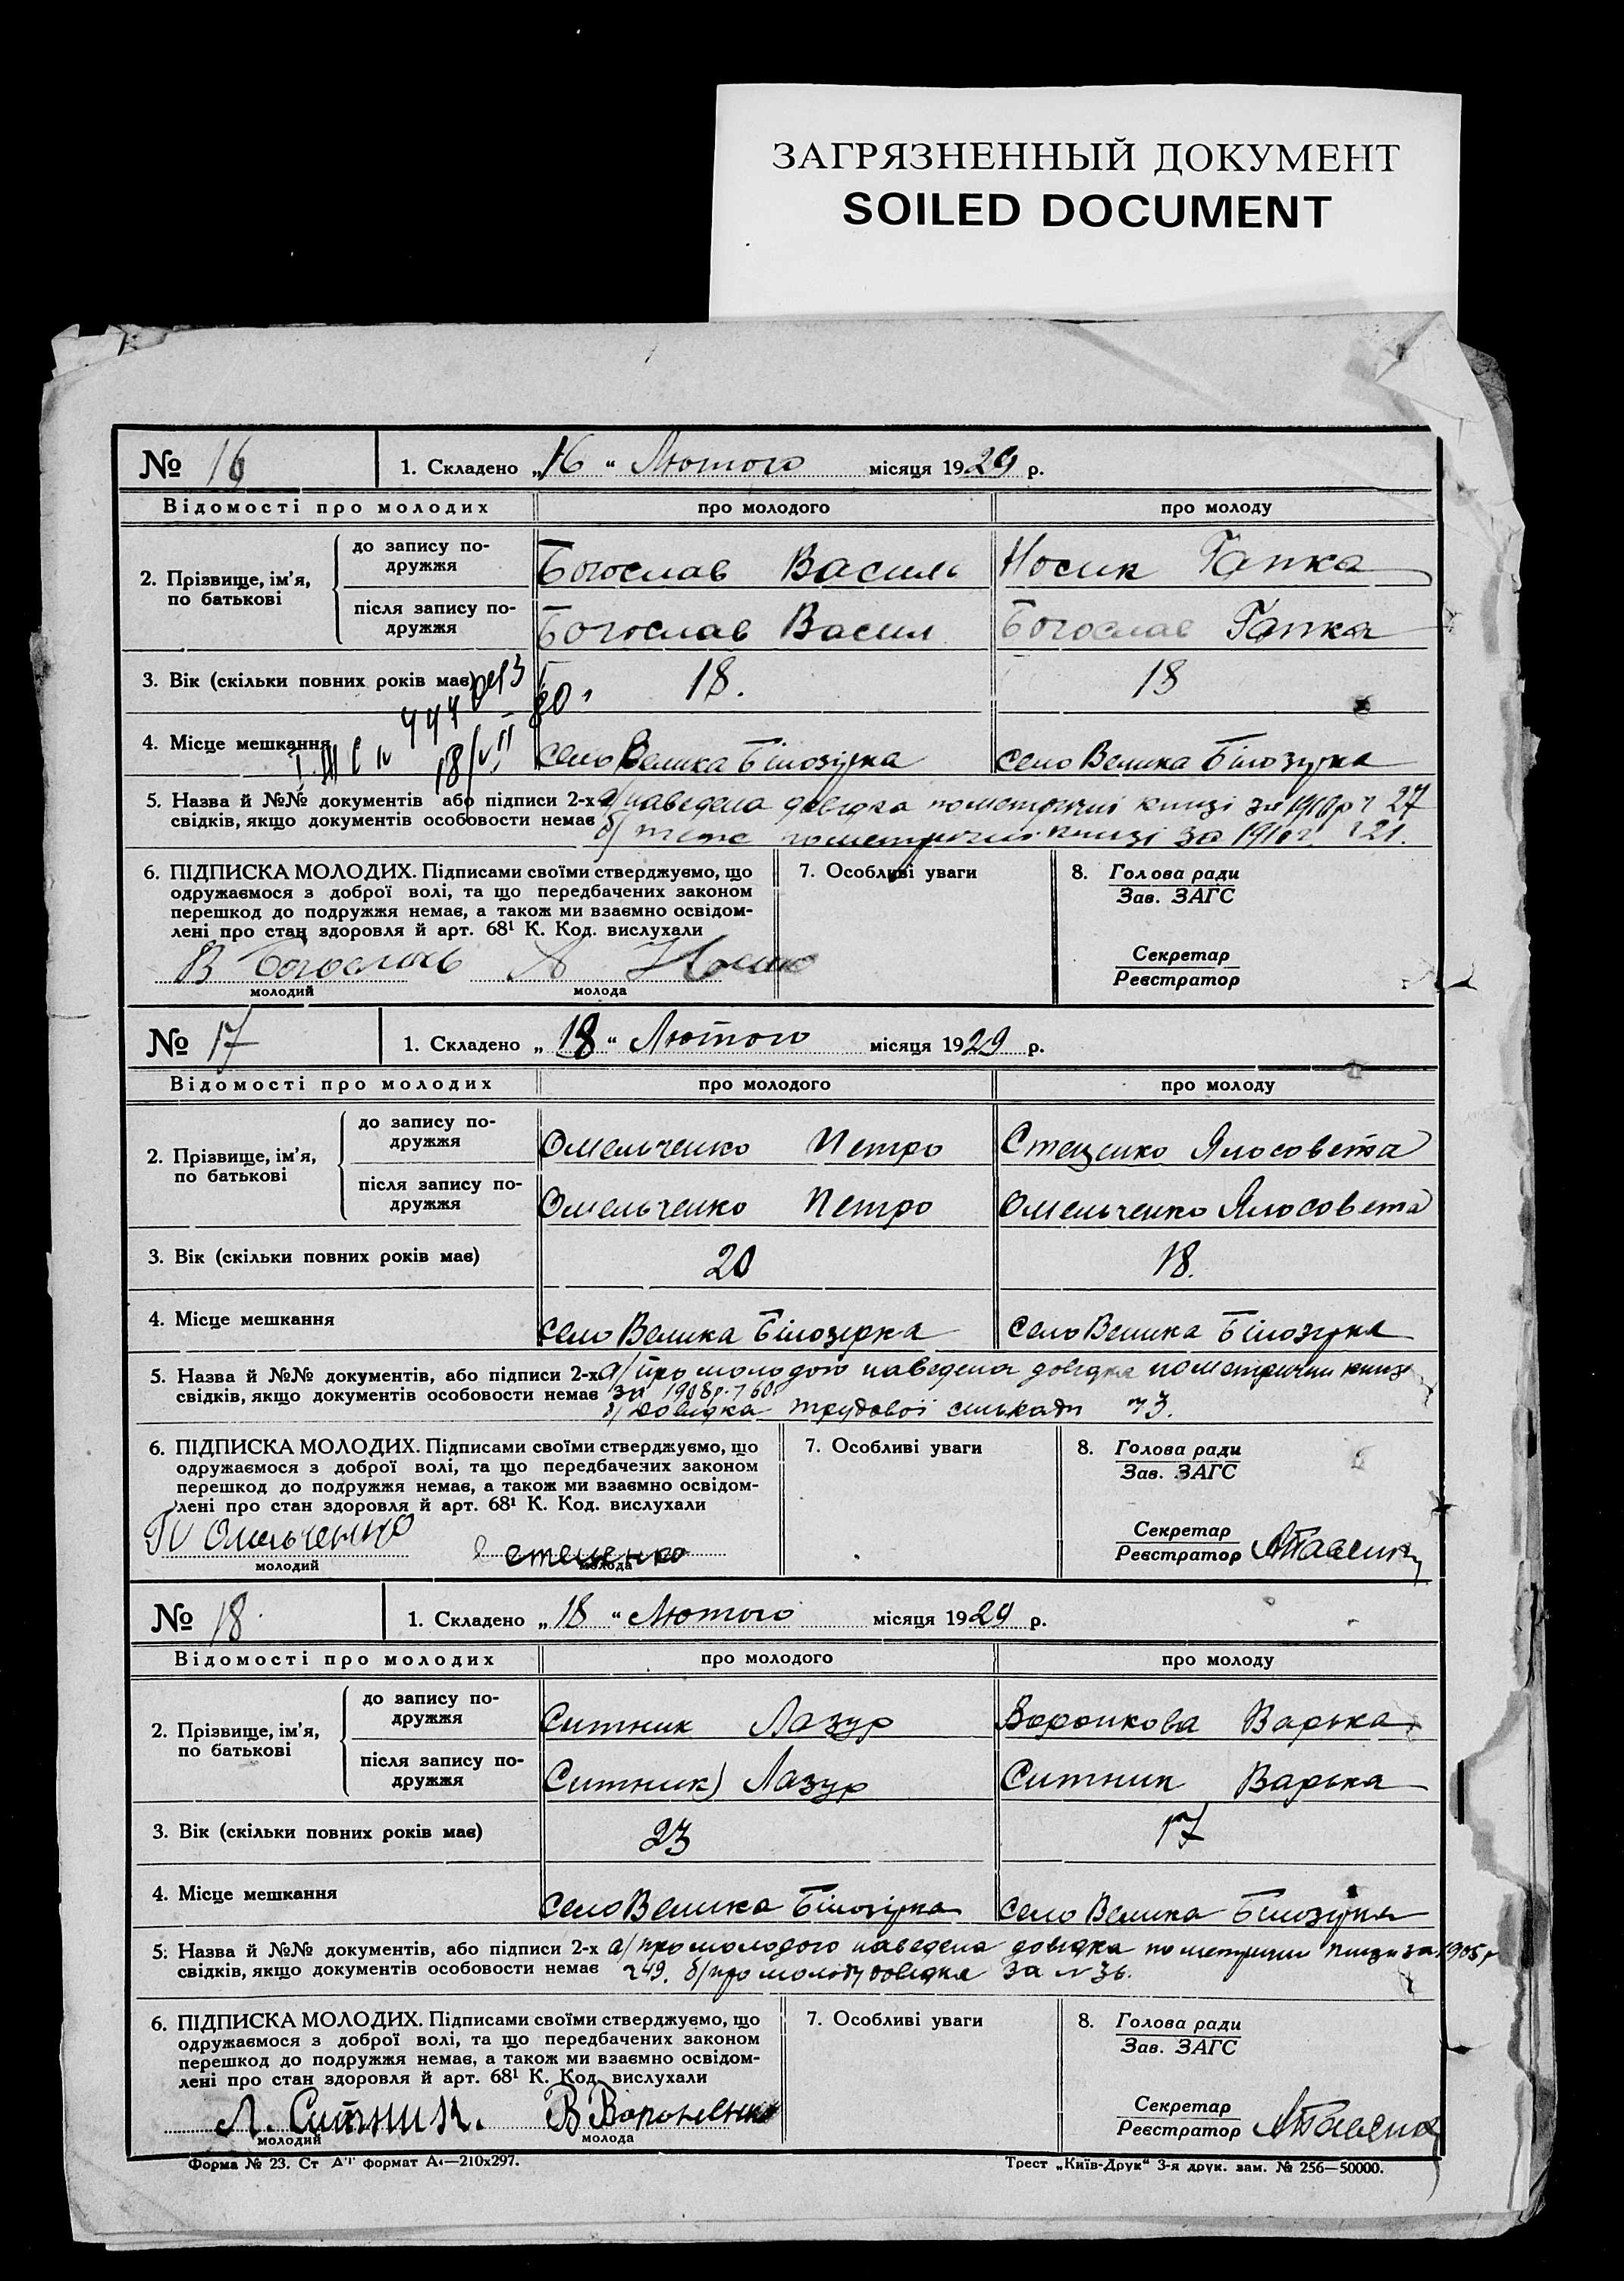 ЗАГРЯЗНЕННЫЙ ДОКУМЕНТ
SOILED DOCUMENT
№ 16 1. Складено „16“ Лютого місяця 1929 р.
Відомості про молодих про молодого про молоду
2. Прізвище, ім’я, по батькові
до запису подружжя Богослав Василь Носик Гапка
після запису подружжя Богослав Васил Богослав Гапка
3. Вік (скільки повних років має) 18. 18
4. Місце мешкання село Велика Білозірка село Велика Білозірка
5. Назва й №№ документів або підписи 2-х а/ наведена довідка по метричні книзі за 1910 р ч 27
свідків, якщо документів особовости немає б/ теж по метричні книзі за 1910 р. ч 21.
6. ПІДПИСКА МОЛОДИХ. Підписами своїми стверджуємо, що 7. Особливі уваги 8. Голова ради
одружаємося з доброї волі, та що передбачених законом Зав. ЗАГС
перешкод до подружжя немає, а також ми взаємно освідом-
лені про стан здоровля й арт. 68¹ К. Код. вислухали
Секретар
В Богослав Реєстратор
молодий молода
№ 17 1. Складено „18“ Лютого місяця 1929 р.
Відомості про молодих про молодого про молоду
2. Прізвище, ім’я, по батькові
до запису подружжя Омельченко Петро Стеценко Ялосовета
після запису подружжя Омельченко Петро Омельченко Ялосовета
3. Вік (скільки повних років має) 20 18.
4. Місце мешкання село Велика Білозірка село Велика Білозірка
5. Назва й №№ документів, або підписи 2-х а/ про молодого наведена довідка по метрични книзі
свідків, якщо документів особовости немає за 1908 р. ч 60
б/ довідка трудової сількади ч 3.
6. ПІДПИСКА МОЛОДИХ. Підписами своїми стверджуємо, що 7. Особливі уваги 8. Голова ради
одружаємося з доброї волі, та що передбачених законом Зав. ЗАГС
перешкод до подружжя немає, а також ми взаємно освідом-
лені про стан здоровля й арт. 68¹ К. Код. вислухали
Секретар
П Омельченко стеценко Реєстратор
молодий молода
№ 18. 1. Складено „18“ Лютого місяця 1929 р.
Відомості про молодих про молодого про молоду
2. Прізвище, ім’я, по батькові
до запису подружжя Ситник Лазур Воронкова Варька
після запису подружжя Ситник Лазур Ситник Варька
3. Вік (скільки повних років має) 23 17
4. Місце мешкання село Велика Білозірка село Велика Білозірка
5. Назва й №№ документів, або підписи 2-х а/ про молодого наведена довідка по метрични книзи за 1905 р
свідків, якщо документів особовости немає ч 49. б/ про молоду довідка за № 36.
6. ПІДПИСКА МОЛОДИХ. Підписами своїми стверджуємо, що 7. Особливі уваги 8. Голова ради
одружаємося з доброї волі, та що передбачених законом Зав. ЗАГС
перешкод до подружжя немає, а також ми взаємно освідом-
лені про стан здоровля й арт. 68¹ К. Код. вислухали
Секретар
Л. Ситник. В Вороненко Реєстратор
молодий молода
Форма № 23. Ст формат А4—210х297. Трест „Київ-Друк“ 3-я друк. зам. № 256—50000.